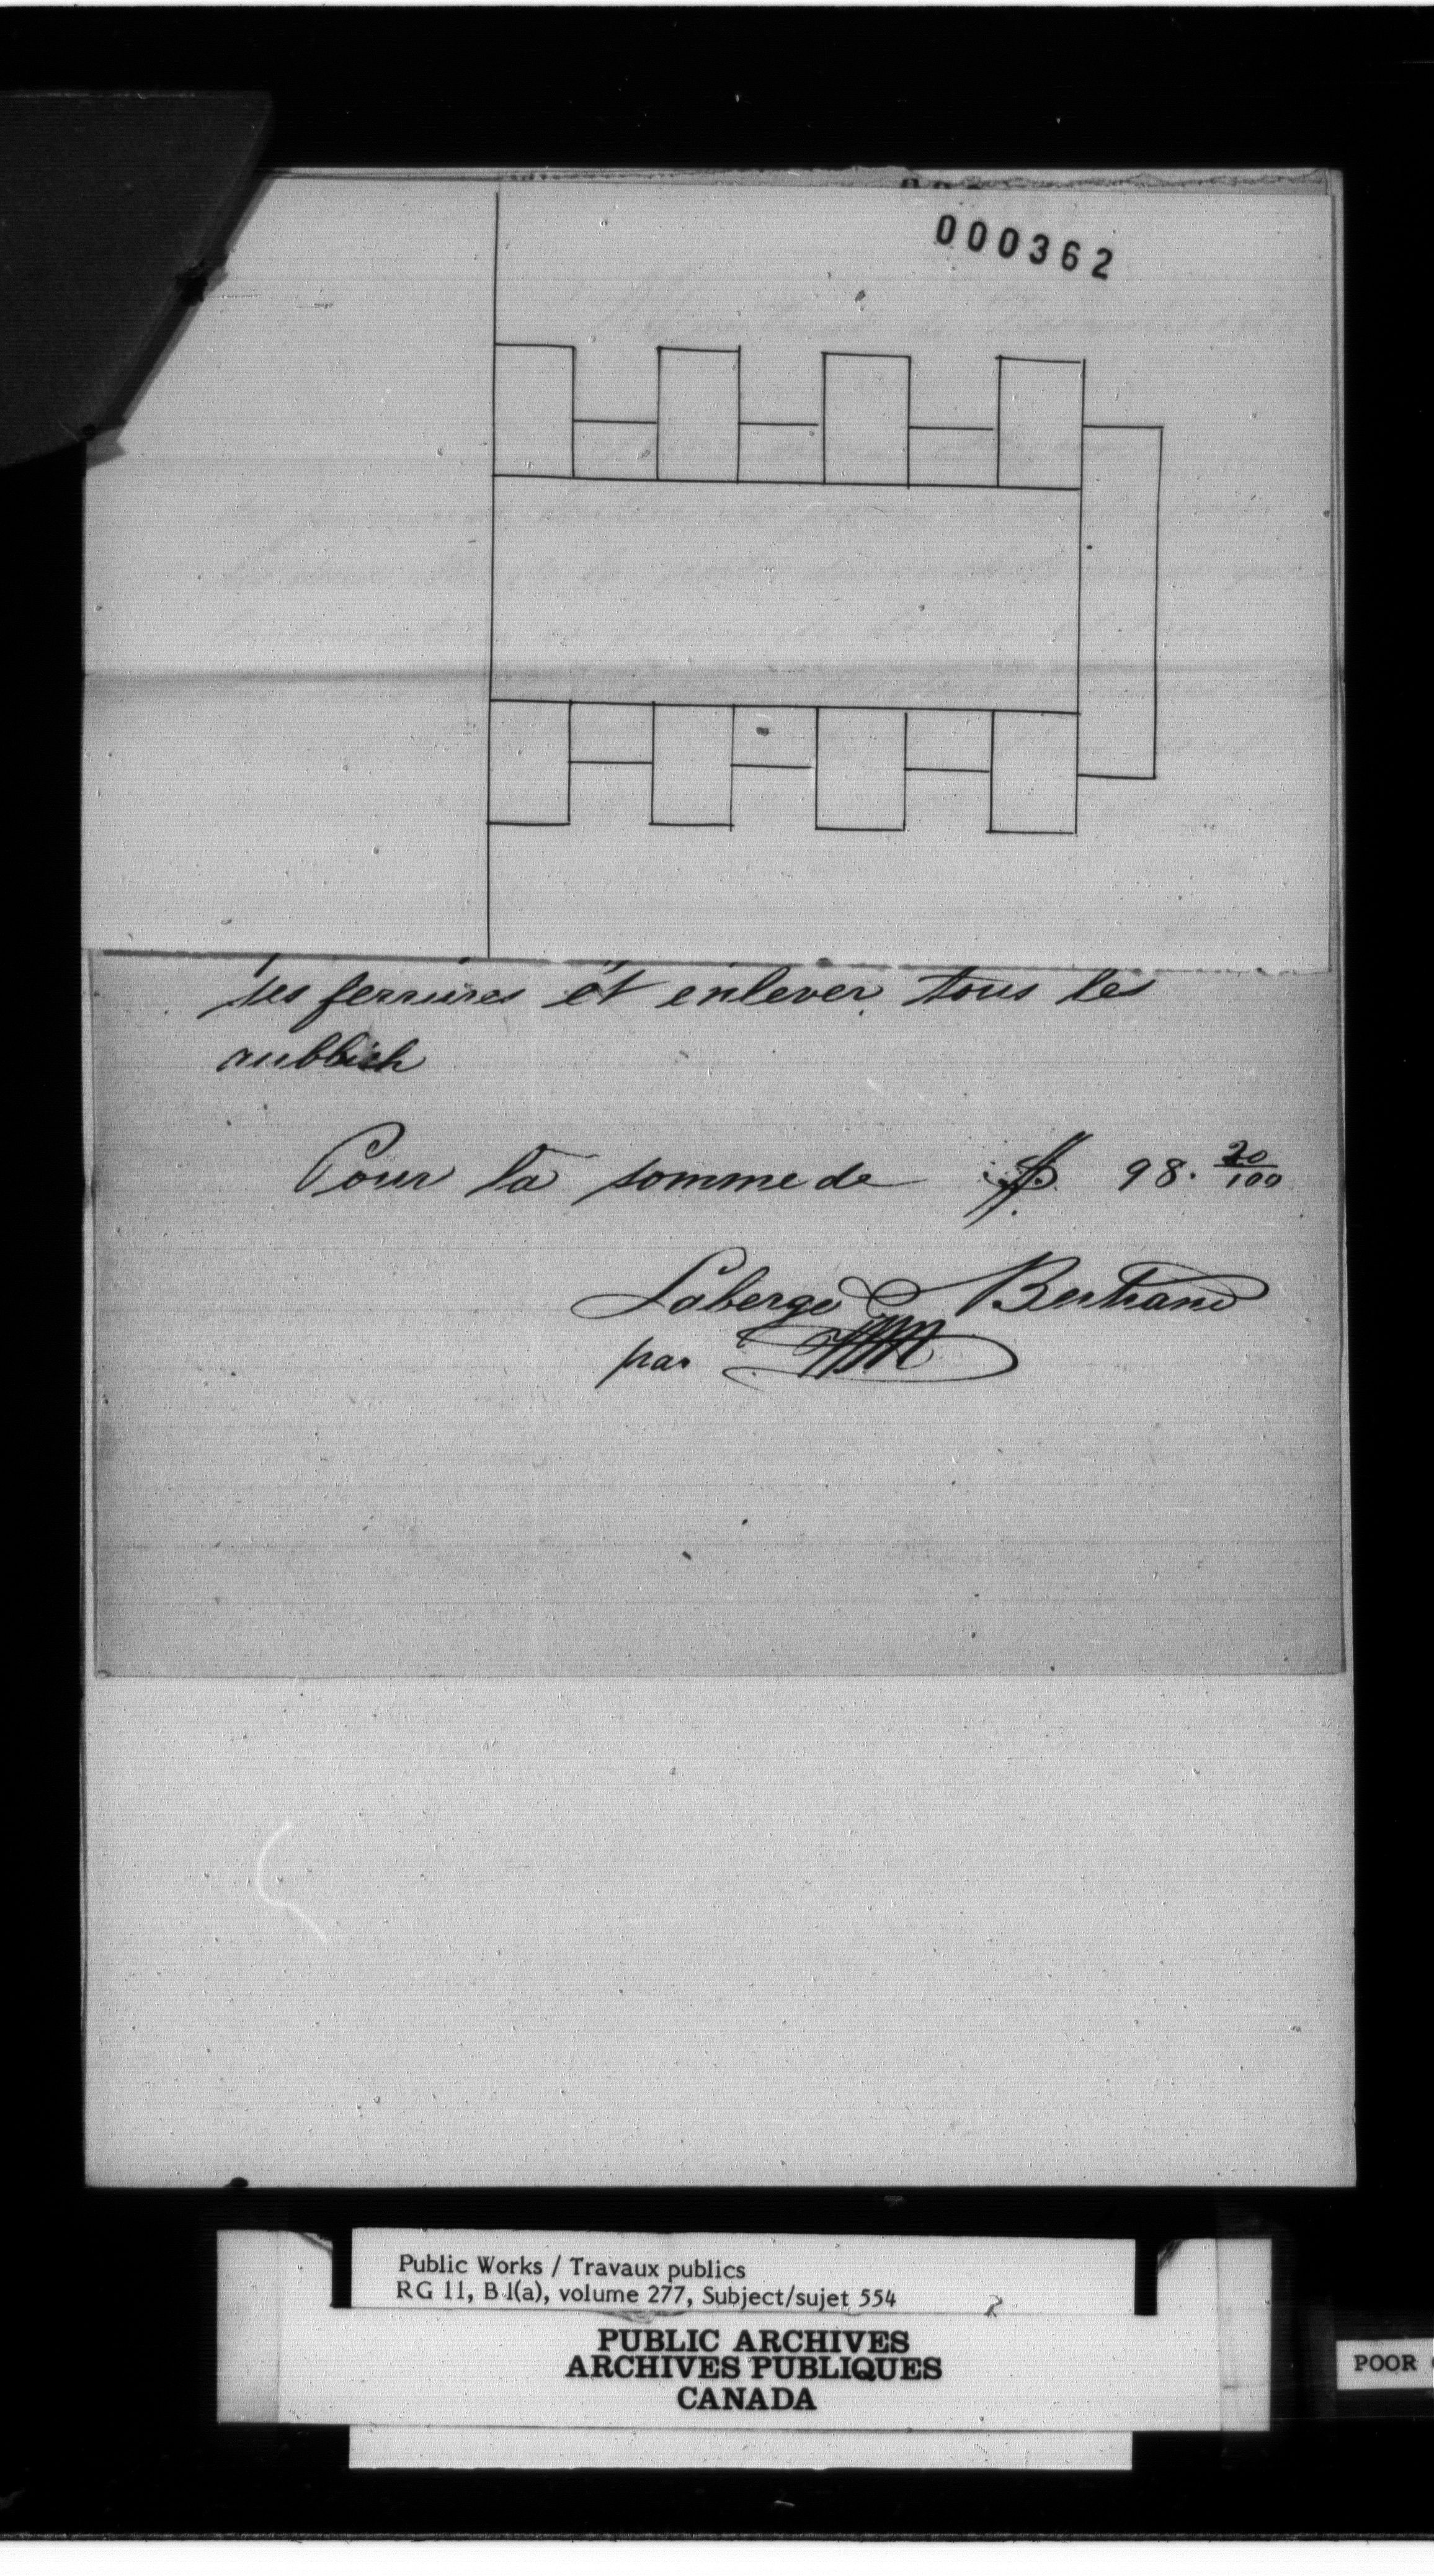 000362
les ferrures et enlever tous les
rubbish
Pour la somme de $ 98. 20/100
Laberge & Bertrand
par
Public Works / Travaux publics
RG 11, B 1(a), volume 277, Subject/sujet 554
2
PUBLIC ARCHIVES
ARCHIVES PUBLIQUES
CANADA
POOR